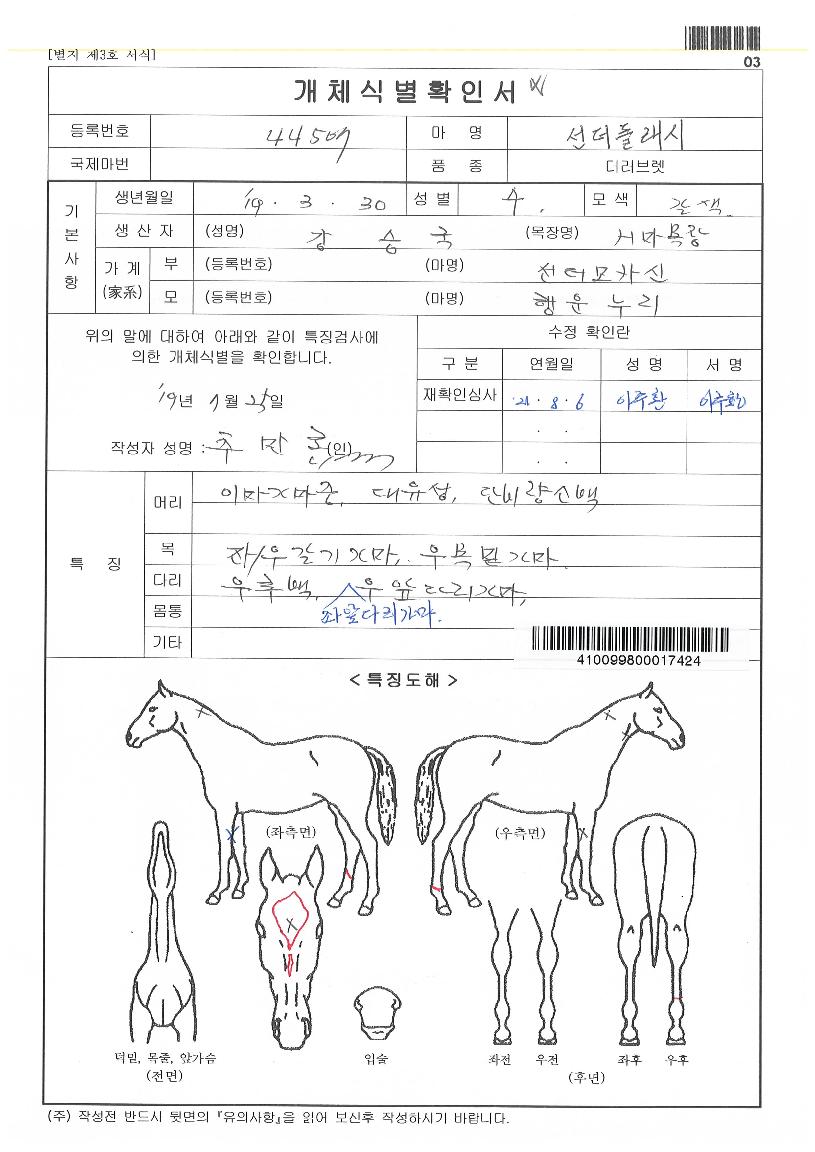 [별지 제3호 서식]
03
개체식별확인서
등록번호 마 명 선더플래시
국제마번 품 종 더러브렛
기본사항
생년월일 '19 . 3 . 30 성 별 수 모 색 갈색
생 산 자 (성명) 강 승 국 (목장명)
가 계 (家系) 부 (등록번호) (마명)
모 (등록번호) (마명) 행운누리
위의 말에 대하여 아래와 같이 특징검사에
의한 개체식별을 확인합니다.
'19년 7월 25일
작성자 성명 : (인)
수정 확인란
구 분 연월일 성 명 서 명
재확인심사 21 . 8 . 6 이주환 이주환
. .
. .
특 징
머리 이마가마존, 대유성, 단비량소백
목 좌/우갈기가마, 우목밑가마
다리 우후백, 우앞다리가마,
몸통 좌앞다리가마.
기타
410099800017424
< 특징도해 >
(좌측면) (우측면)
턱밑, 목줄, 앞가슴
(전면)
입술
좌전 우전 좌후 우후
(후면)
(주) 작성전 반드시 뒷면의 『유의사항』을 읽어 보신후 작성하시기 바랍니다.